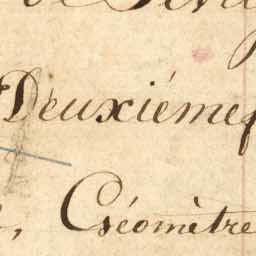 Deuxiéme
, Géomètre